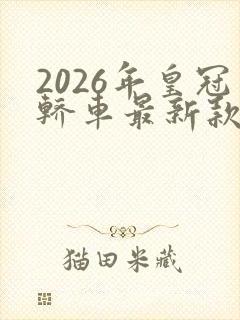 2026年皇冠
轿車最新款
猫田米藏